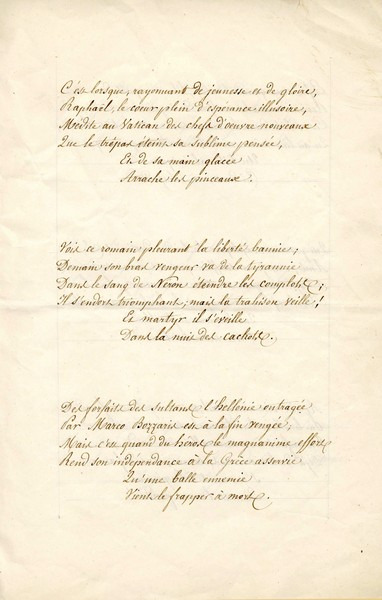 C'est lorsque, rayonnant de jeunesse et de gloire,
Raphaël, le cœur plein d'espérance illusoire,
Médite au Vatican des chefs d'œuvre nouveaux
Que le trépas éteint sa sublime pensée,
Et de sa main glacée
Arrache les pinceaux.
Vois ce romain pleurant la liberté bannie;
Demain son bras vengeur va de la tyrannie
Dans le sang de Néron éteindre les complots;
Il s'endort triomphant; mais la trahison veille!
Et martyr il s'éveille
Dans la nuit des cachots.
Des forfaits des sultans l'hellénie outragée
Par Marco Bozzaris est à la fin vengée;
Mais c'est quand du héros le magnanime effort
Rend son indépendance à la Grèce asservie
Qu'une balle ennemie
Vient le frapper à mort.